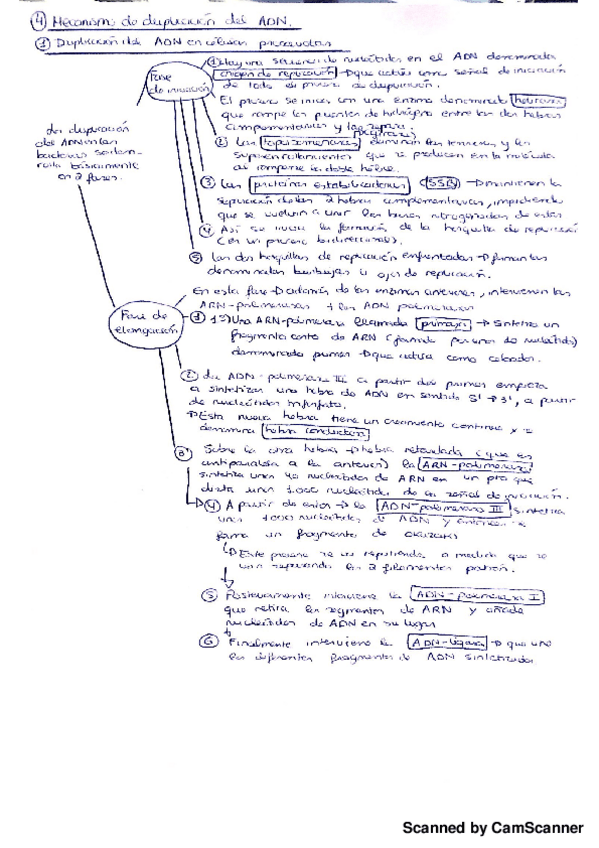 ④ Mecanismo de duplicación del ADN.
① Duplicación del ADN en células procariotas
Fase de iniciación
① Hay una secuencia de nucleótidos en el ADN denominada
origen de replicación → que actúa como señal de iniciación
de todo el proceso de duplicación.
El proceso se inicia con una enzima denominada helicasa
que rompe los puentes de hidrógeno entre las dos hebras
complementarias y las separa
② Las topoisomerasas eliminan las tensiones y los
superenrollamientos que se producen en la molécula
al romperse la doble hélice.
③ Las proteínas estabilizadoras (SSB) → la
separación de las 2 hebras complementarias, impidiendo
que se vuelvan a unir las bases nitrogenadas de estas
④ Así se inicia la formación de la horquilla de replicación
(es un proceso bidireccional).
⑤ Las dos horquillas de replicación enfrentadas → forman las
denominadas burbujas u ojos de replicación.
La duplicación
del ADN en las
bacterias se desa-
rrolla básicamente
en 2 fases.
Fase de
elongación
En esta fase → además de las enzimas anteriores, intervienen las
ARN-polimerasas y las ADN polimerasas
① 1º) Una ARN-polimerasa llamada primasa → sintetiza un
fragmento corto de ARN (formado por unos de nucleótidos)
denominado primer → que actúa como cebador.
② La ADN-polimerasa III a partir del primer empieza
a sintetizar una hebra de ADN en sentido 5' → 3', a partir
de nucleótidos trifosfato.
→ Esta nueva hebra tiene un crecimiento continuo y se
denomina hebra conductora
③ Sobre la otra hebra → hebra retardada (que es
antiparalela a la anterior) la ARN-polimerasa
sintetiza unos 40 nucleótidos de ARN en un pto que
dista unos 1.000 nucleótidos de la señal de iniciación.
→ ④ A partir de ellos → la ADN-polimerasa III sintetiza
unos 1000 nucleótidos de ADN y
forma un fragmento de okazaki
↳ Este proceso se va repitiendo a medida que se
van separando los 2 filamentos patrón.
⑤ Posteriormente interviene la ADN-polimerasa I
que retira los segmentos de ARN y añade
nucleótidos de ADN en su lugar
⑥ Finalmente interviene la ADN-ligasa → que une
los diferentes fragmentos de ADN sintetizados
Scanned by CamScanner